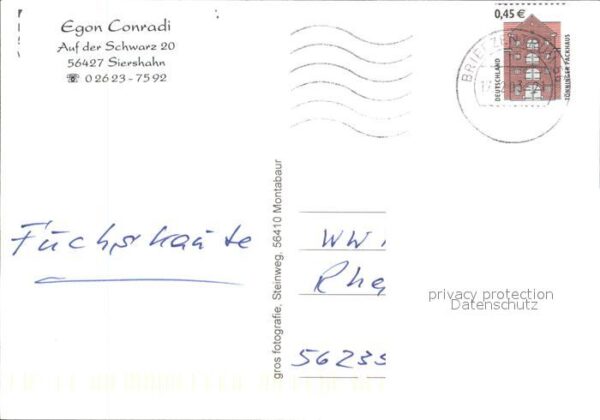 Egon Conradi
Auf der Schwarz 20
56427 Siershahn
☏ 02623-7592
0,45 €
DEUTSCHLAND
TÖNNINGER PACKHAUS
BRIEFZEN
Fuchskaute
gros fotografie, Steinweg, 56410 Montabaur
WW
Rhe
56235
privacy protection
Datenschutz